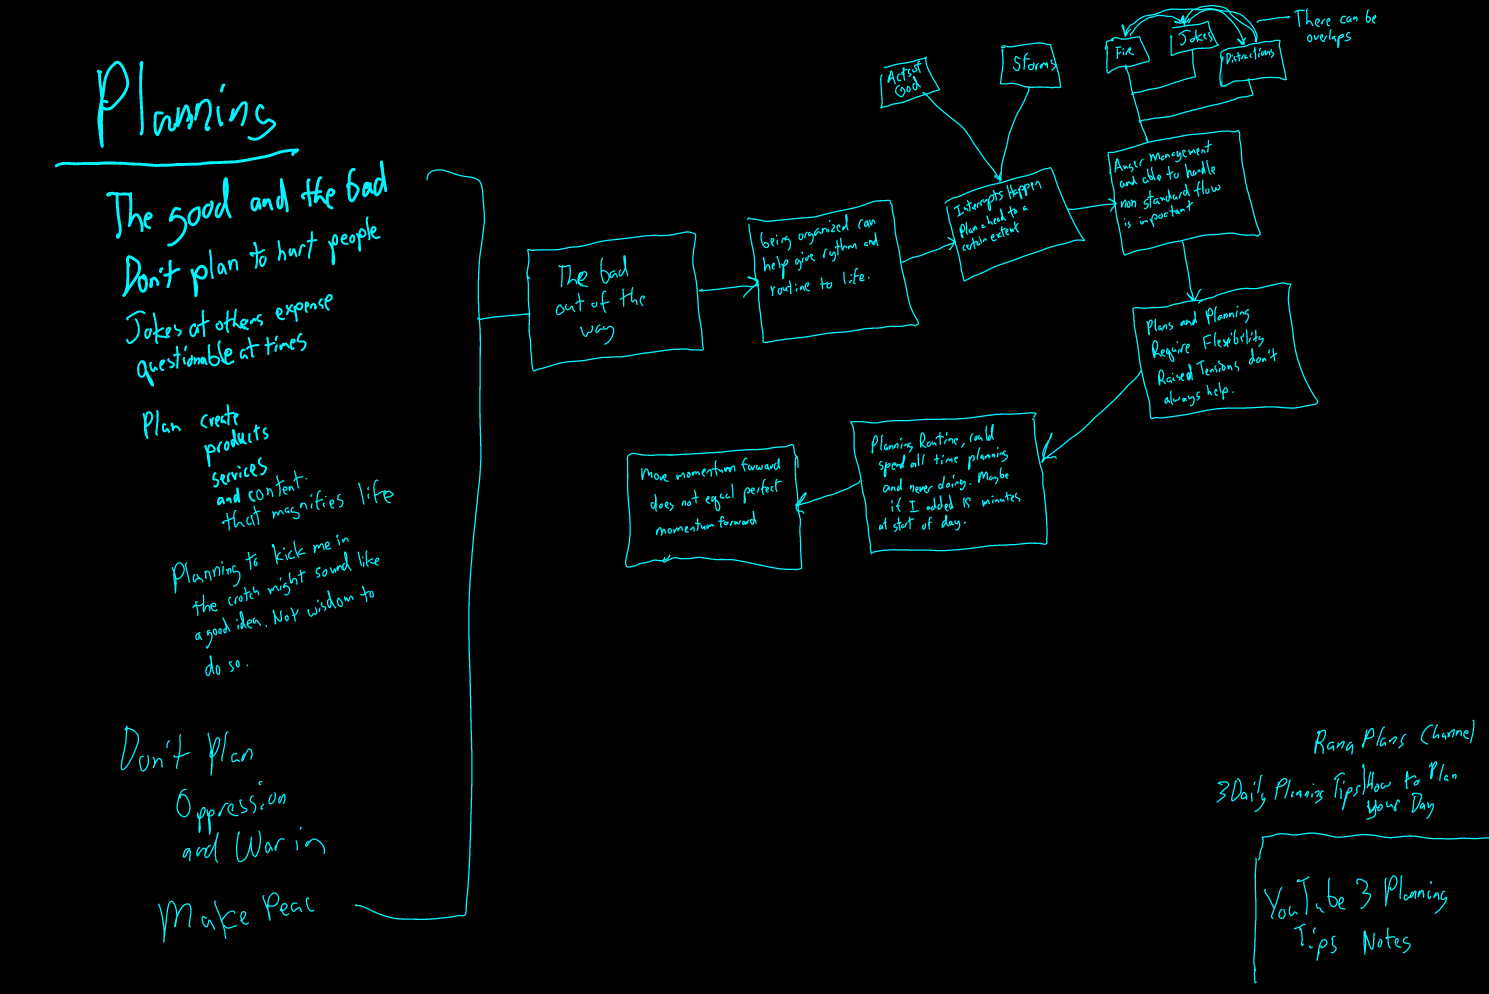 Planning
The good and the bad
Don't plan to hurt people
Jokes at others expense
questionable at times
Plan create
products
services
and content.
that magnifies life
Planning to kick me in
the crotch might sound like
a good idea. Not wisdom to
do so.
Don't Plan
Oppression
and War in
Make Peac
The bad
out of the
way
Being organized can
help give rythm and
routine to life.
Acts of
God
Storms
Interrupts Happen
Plan ahead to a
certain extent
Fire
Jokes
Distractions
There can be
overlaps
Anger management
and able to handle
non standard flow
is important
Plans and Planning
Require Flexibility
Raised Tensions don't
always help.
Planning Routine, could
spend all time planning
and never doing. Maybe
if I added 15 minutes
at start of day.
More momentum forward
does not equal perfect
momentum forward
Rana Plans Channel
3 Daily Planning Tips|How to Plan
Your Day
YouTube 3 Planning
Tips Notes